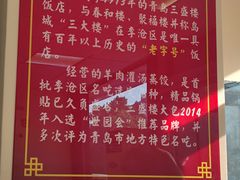 年的青岛三盛楼
饭店，与春和楼、聚福楼并称岛
城“三大楼”在李沧区是唯一具
有百年以上历史的“老字号”饭
店。
经营的羊肉灌汤蒸饺，是首
批李沧区名吃
贴已久
三盛楼大包2014
年入选“世园会”推荐品牌，并
多次评为青岛市地方特色名吃。